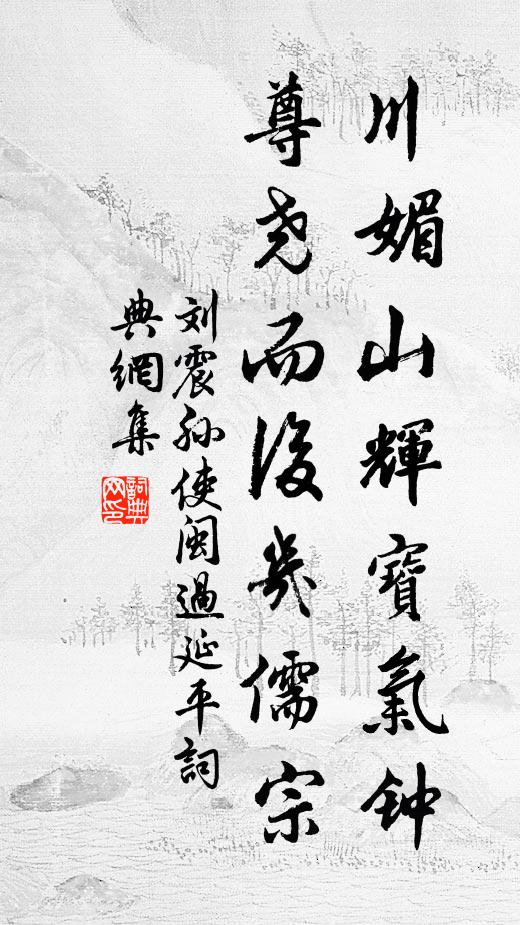 川媚山輝寶氣钟
尊尧而後幾儒宗
刘震孙使闽過延平詞
典網集
詞典网印